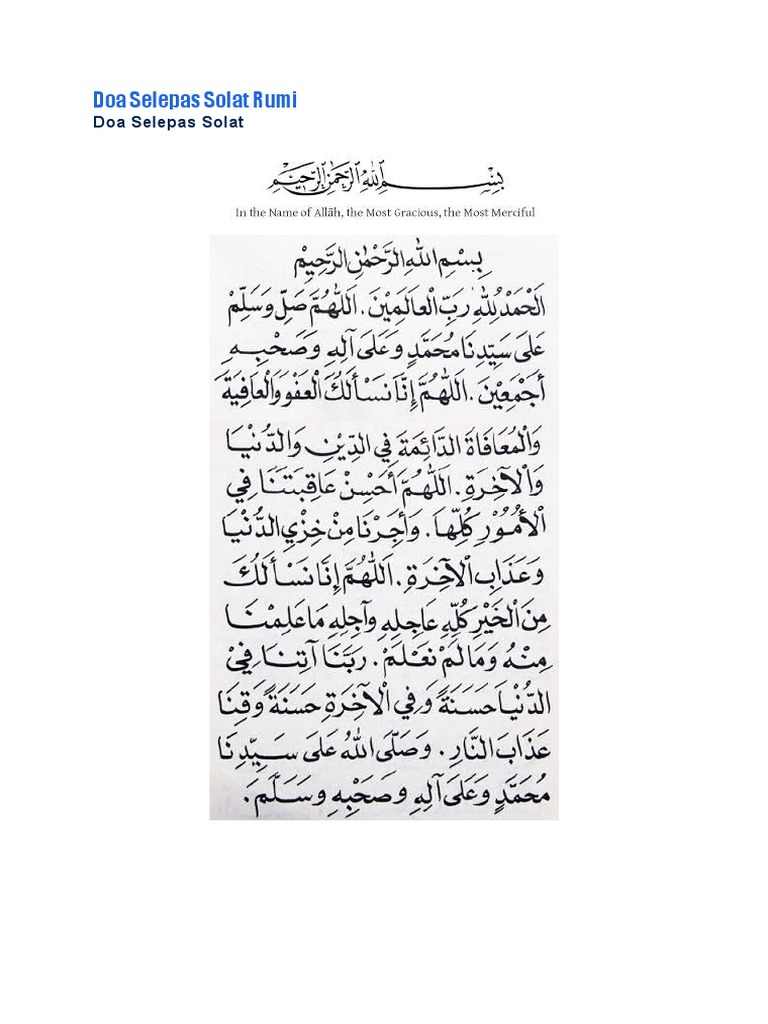 Doa Selepas Solat Rumi
Doa Selepas Solat
بِسْمِ اللهِ الرَّحْمٰنِ الرَّحِيْمِ
In the Name of Allāh, the Most Gracious, the Most Merciful
بِسْمِ اللهِ الرَّحْمٰنِ الرَّحِيْمِ
اَلْحَمْدُ لِلّٰهِ رَبِّ الْعَالَمِيْنَ. اَللّٰهُمَّ صَلِّ وَسَلِّمْ
عَلَى سَيِّدِنَا مُحَمَّدٍ وَعَلَى آلِهِ وَصَحْبِهِ
أَجْمَعِيْنَ. اَللّٰهُمَّ إِنَّا نَسْأَلُكَ الْعَفْوَ وَالْعَافِيَةَ
وَالْمُعَافَاةَ الدَّائِمَةَ فِي الدِّيْنِ وَالدُّنْيَا
وَالْآخِرَةِ. اَللّٰهُمَّ أَحْسِنْ عَاقِبَتَنَا فِي
الْأُمُوْرِ كُلِّهَا. وَأَجِرْنَا مِنْ خِزْيِ الدُّنْيَا
وَعَذَابِ الْآخِرَةِ. اَللّٰهُمَّ إِنَّا نَسْأَلُكَ
مِنَ الْخَيْرِ كُلِّهِ عَاجِلِهِ وَآجِلِهِ مَا عَلِمْنَا
مِنْهُ وَمَا لَمْ نَعْلَمْ. رَبَّنَا آتِنَا فِيْ
الدُّنْيَا حَسَنَةً وَفِي الْآخِرَةِ حَسَنَةً وَقِنَا
عَذَابَ النَّارِ. وَصَلَّى اللهُ عَلَى سَيِّدِنَا
مُحَمَّدٍ وَعَلَى آلِهِ وَصَحْبِهِ وَسَلَّمَ.